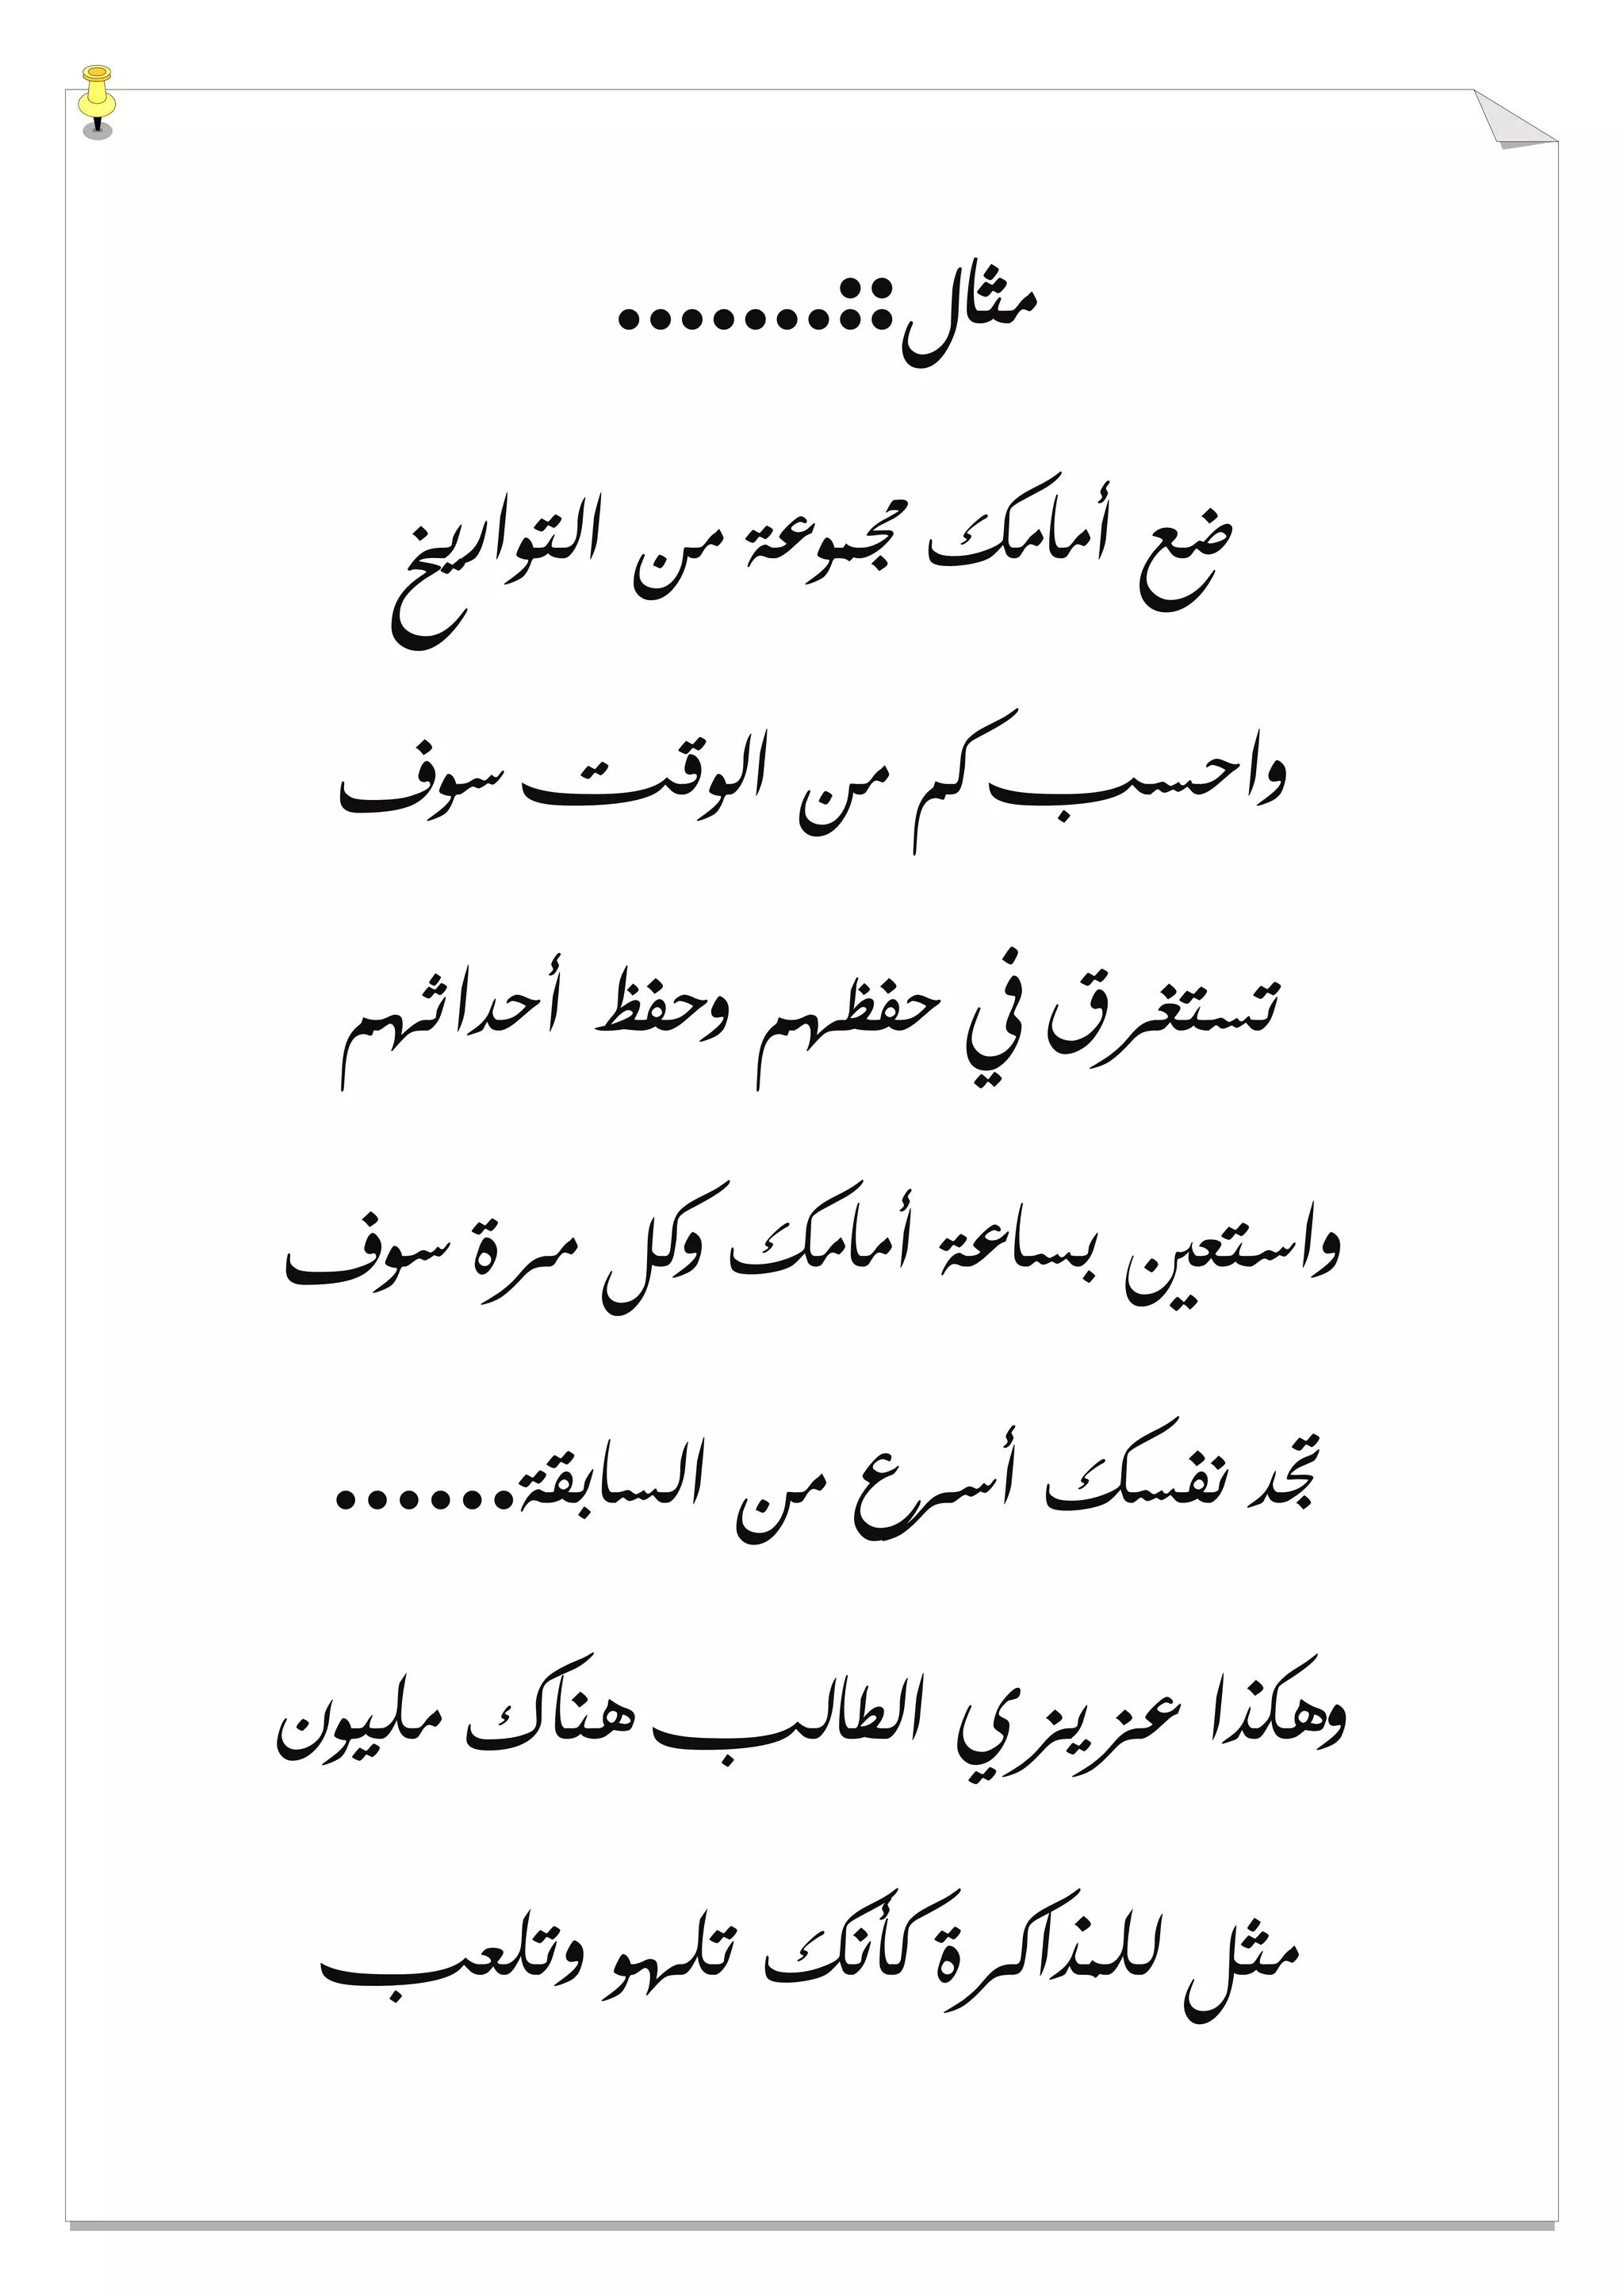 مثال::.......
ضع أمامك مجموعة من التواريخ
واحسب كم من الوقت سوف
تستغرق في حفظهم وحفظ أحداثهم
واستعين بساعة أمامك وكل مرة سوف
تجد نفسك أسرع من السابقة......
وهكذا عزيزي الطالب هناك مليون
مثل للمذاكرة كأنك تلهو وتلعب